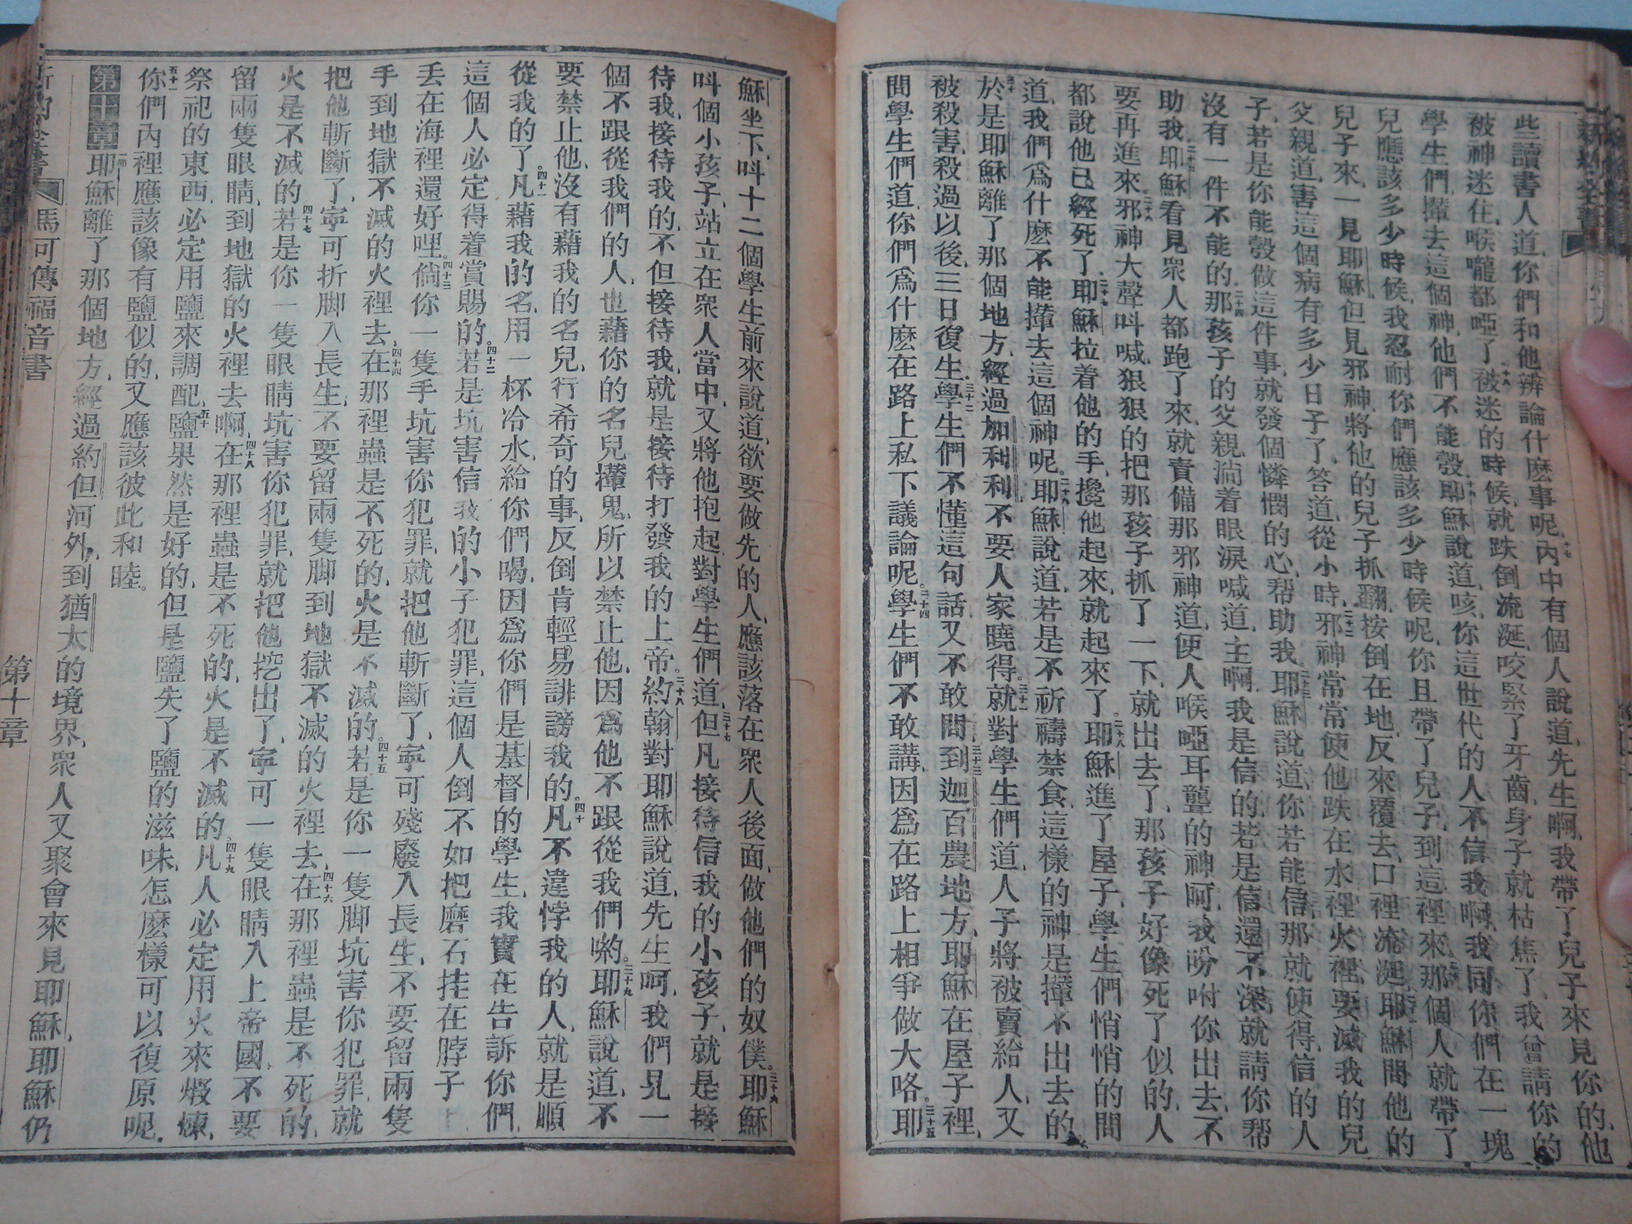 些讀書人道、你們和他辨論什麽事呢、十七內中有個人說道、先生啊、我帶了兒子來見你的、他
被神迷住、喉嚨都啞了、十八被迷的時候、就跌倒流涎、咬緊了牙齒、身子就枯焦了、我曾請你的
學生們、攆去這個神、他們不能彀、十九耶穌說道、咳、你這世代的人、不信我啊、我同你們在一塊
兒、應該多少時候、我忍耐你們、應該多少時候呢、你且帶了兒子到這裡來、那個人就帶了
兒子來、一見耶穌、但見邪神將他的兒子抓翻、按倒在地、反來覆去、口裡流涎、耶穌問他的
父親道、害這個病有多少日子了、答道、從小時、二十二邪神常常使他跌在水裡火裡、要滅我的兒
子、若是你能彀做這件事、就發個憐憫的心、帮助我、二十三耶穌說道、你若能信、那就使得、信的人
沒有一件不能的、二十四那孩子的父親、淌着眼淚喊道、主啊、我是信的、若是信還不深、就請你帮
助我、二十五耶穌看見衆人都跑了來、就責備那邪神道、使人喉啞耳聾的神呵、我吩咐你出去、不
要再進來、二十六邪神大聲呌喊、狠狠的把那孩子抓了一下、就出去了、那孩子好像死了似的、人
都說他已經死了、二十七耶穌拉着他的手、攙他起來、就起來了、二十八耶穌進了屋子、學生們悄悄的問
道、我們爲什麽不能攆去這個神呢、二十九耶穌說道、若是不祈禱禁食、這樣的神、是攆不出去的、
三十於是耶穌離了那個地方、經過加利利、不要人家曉得、三十一就對學生們道、人子將被賣給人、又
被殺害、殺過以後、三日復生、三十二學生們不懂這句話、又不敢問、三十三到迦百農地方、耶穌在屋子裡、
問學生們道、你們爲什麽在路上私下議論呢、三十四學生們不敢講、因爲在路上相爭做大咯、三十五耶
穌坐下、呌十二個學生前來、說道、欲要做先的人、應該落在衆人後面、做他們的奴僕、三十六耶穌
呌個小孩子、站立在衆人當中、又將他抱起、對學生們道、三十七但凡接待信我的小孩子、就是接
待我、接待我的、不但接待我、就是接待打發我的上帝、三十八約翰對耶穌說道、先生呵、我們見一
個不跟從我們的人、也藉你的名兒攆鬼、所以禁止他、因爲他不跟從我們喲、三十九耶穌說道、不
要禁止他、沒有藉我的名兒、行希奇的事、反倒肯輕易誹謗我的、四十凡不違悖我的人、就是順
從我的了、四十一凡藉我的名、用一杯冷水、給你們喝、因爲你們是基督的學生、我實在告訴你們、
這個人必定得着賞賜的、四十二若是坑害信我的小子犯罪、這個人倒不如把磨石挂在脖子
丢在海裡還好哩、四十三倘你一隻手坑害你犯罪、就把他斬斷了、寧可殘廢入長生、不要留兩隻
手到地獄不滅的火裡去、四十四在那裡蟲是不死的、火是不滅的、四十五若是你一隻脚坑害你犯罪、就
把他斬斷了、寧可折脚入長生、不要留兩隻脚到地獄不滅的火裡去、四十六在那裡蟲是不死的、
火是不滅的、四十七若是你一隻眼睛坑害你犯罪、就把他挖出了、寧可一隻眼睛入上帝國、不要
留兩隻眼睛、到地獄的火裡去啊、四十八在那裡蟲是不死的、火是不滅的、四十九凡人必定用火來煅煉、
祭祀的東西、必定用鹽來調配、五十鹽果然是好的、但是鹽失了鹽的滋味、怎麽樣可以復原呢、
五十一你們內裡應該像有鹽似的、又應該彼此和睦。
第十章 一耶穌離了那個地方、經過約但河外、到猶太的境界、衆人又聚會來見耶穌、耶穌仍
新約全書 馬可傳福音書 第十章